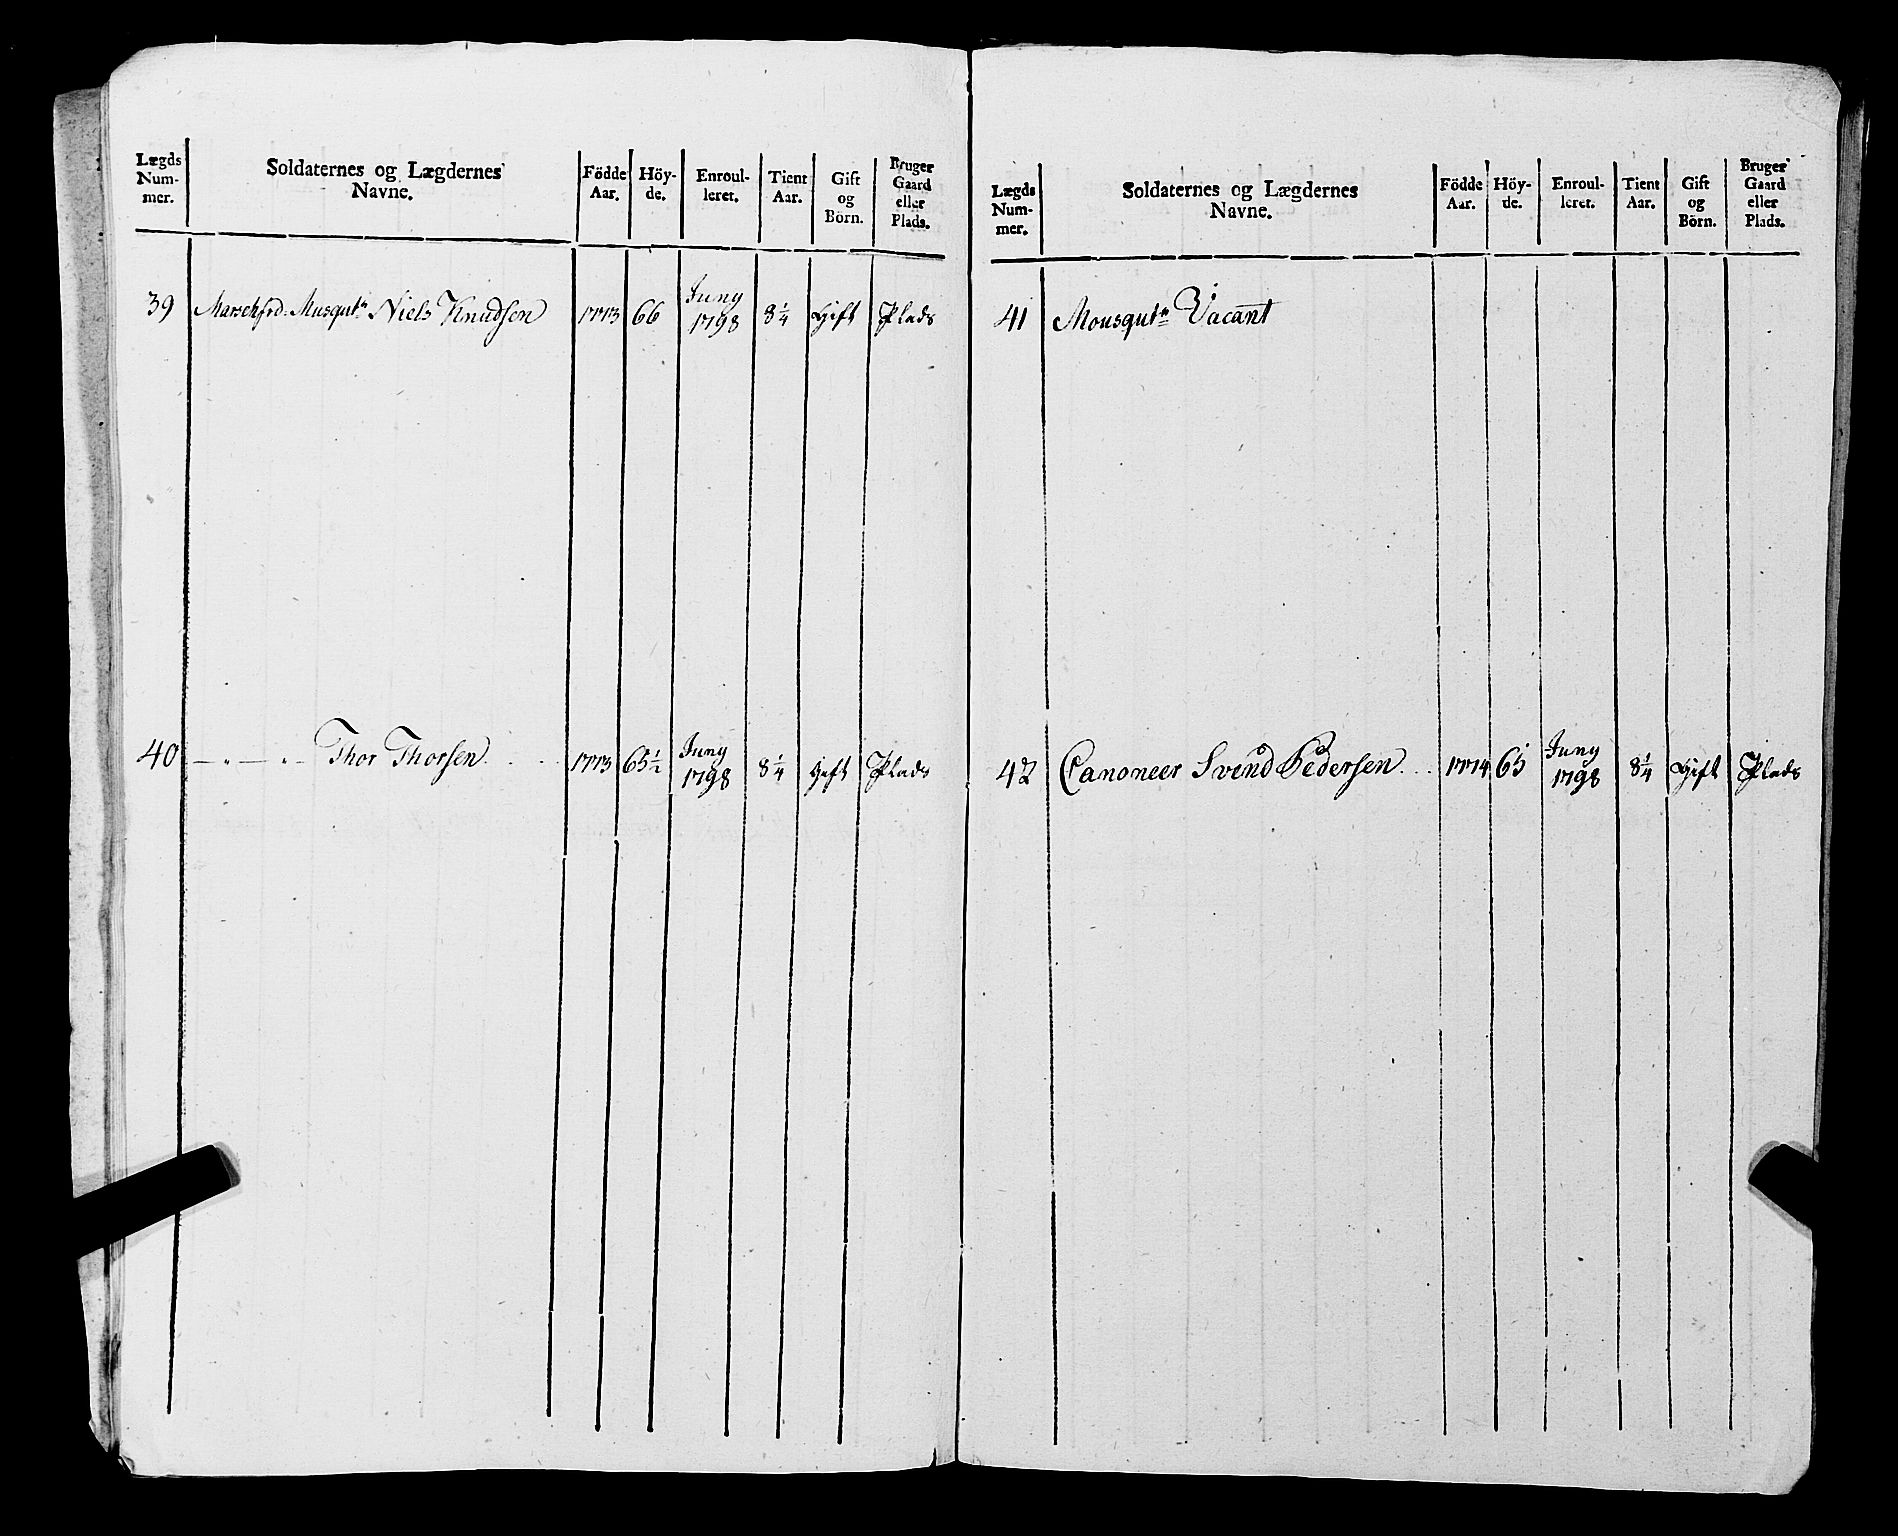 Lægds Num-mer. Soldaternes og Lægdernes Navne. Födde Aar. Höy-de. Enroul-leret. Tient Aar. Gift og Börn. Bruger Gaard eller Plads.
39 Marschfrd: Musqutr Niels Knudsen 1773 66 Juny 1798 8 1/4 Gift Plads
40 — " — " — Thor Thorsen 1773 65 1/2 Juny 1798 8 1/4 Gift Plads
Lægds Num-mer. Soldaternes og Lægdernes Navne. Födde Aar. Höy-de. Enroul-leret. Tient Aar. Gift og Börn. Bruger Gaard eller Plads.
41 Mousqutr Vacant
42 Canoneer Svend Pedersen 1774 65 Juny 1798 8 1/4 Gift Plads